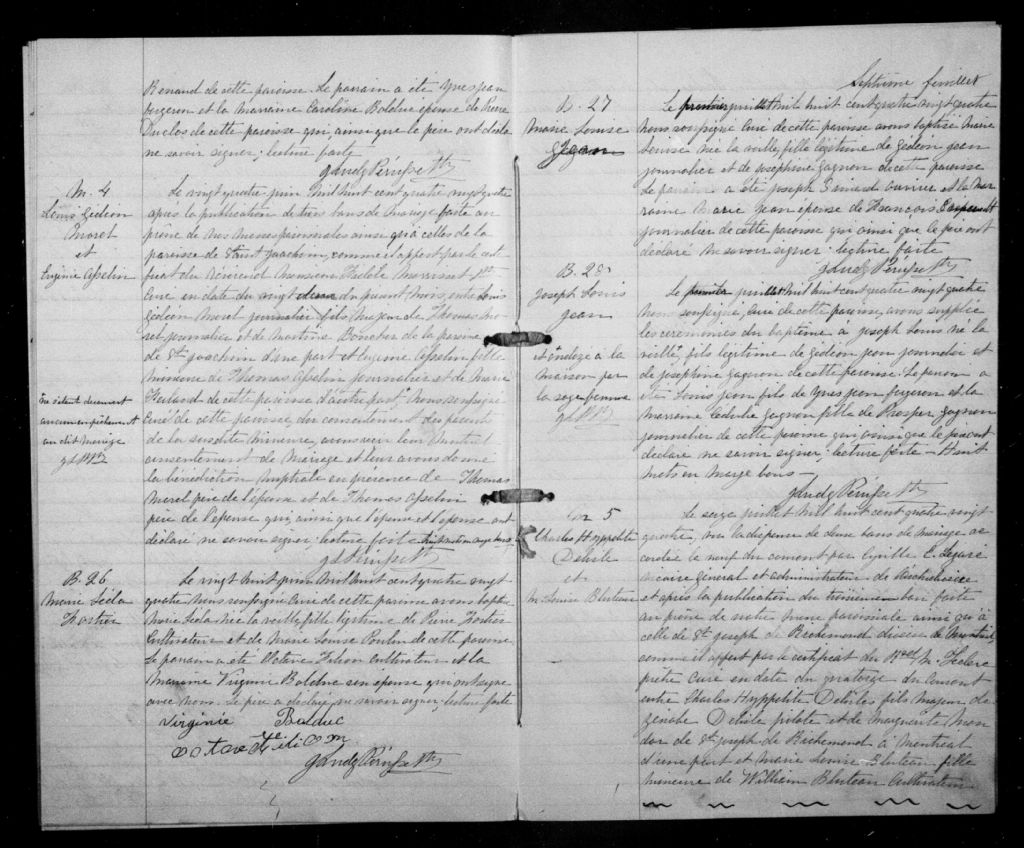 Renaud de cette paroisse. Le parrain a été Yves jean
forgeron et la marraine Caroline Bolduc épouse de Pierre
Duclos de cette paroisse qui, ainsi que le père ont décla
ne savoir signer. lecture faite
M. 4
Louis Gédéon
Morel
et
Eugénie Asselin
Le vingt quatre juin mil huit cent quatre vingt quatre
après la publication de trois bans de mariage faite au
prône de nos messes paroissiales ainsi qu'à celles de la
paroisse de Saint Joachim, comme il appert par le certi
ficat du Révérend Monsieur Morrisset Ptre
Curé en date du vingt du présent mois, entre Louis
Gédéon Morel journalier fils majeur de Thomas Mo
rel journalier et de Martine Boucher de la paroisse
de St Joachim d'une part et Eugénie Asselin fille
mineure de Thomas Asselin journalier et de Marie
de cette paroisse d'autre part Nous soussigné
Curé de cette paroisse, du consentement des parents
de la susdite mineure, avons reçu leur mutuel
consentement de mariage et leur avons donné
la bénédiction nuptiale en présence de Thomas
Morel père de l'époux et de Thomas Asselin
père de l'épouse qui, ainsi que l'époux et l'épouse ont
déclaré ne savoir signer, lecture faite
ne s'étant découvert
aucun empêchement
au dit mariage
B. 26
Marie Léda
Le vingt huit juin mil huit cent quatre vingt
quatre Nous soussigné Curé de cette paroisse avons baptisé
Marie Léda née la veille fille légitime de Pierre
Cultivateur et de Marie Louise Poulin de cette paroisse
Le parrain a été Octave Filion Cultivateur et la
Marraine Virginie Bolduc son épouse qui ont signé
avec nous. Le père a déclaré ne savoir signer, lecture faite
Virginie Bolduc
octave filion
Septième feuillet
B. 27
Marie Louise
Jean
Le premier juillet mil huit cent quatre vingt quatre
Nous soussigné Curé de cette paroisse avons baptisé Marie
Louise née la veille, fille légitime de Gédéon jean
journalier et de Joséphine Gagnon de cette paroisse
Le parrain a été Joseph Simard ouvrier et la mar
raine Marie Jean épouse de François
journalier de cette paroisse qui ainsi que le père ont
déclaré ne savoir signer. lecture faite
B. 28
Joseph Louis
jean
et ondoyé à la
maison par
la sage femme
Le premier juillet mil huit cent quatre vingt quatre
Nous soussigné, Curé de cette paroisse, avons supplée
les cérémonies du baptême à Joseph Louis né la
veille, fils légitime de Gédéon jean journalier et
de Joséphine Gagnon de cette paroisse. Le parrain a
été Louis jean fils de Yves jean forgeron et la
marraine Gagnon fille de Prosper Gagnon
journalier de cette paroisse qui ainsi que le père ont
déclaré ne savoir signer, lecture faite - Huit
mots en marge bons -
M 5
Charles Hyppolite
Delisle
et
M. Louise Bluteau
Le seize juillet mil huit cent quatre vingt
quatre, vu la dispense de deux bans de mariage ac
cordée le neuf du courant par Cyrille E. Légaré
vicaire général et administrateur de l'Archidiocèse
et après la publication du troisième ban faite
au prône de notre messe paroissiale ainsi qu'à
celle de St Joseph de Richemond diocèse de Montréal
comme il appert par le certificat du Rvd M. Leclerc
prêtre curé en date du quatorze du courant
entre Charles Hyppolite Delisle fils majeur de
Delisle pilote et de Marguerite Mon
dor de St Joseph de Richemond à Montréal
d'une part et Marie Louise Bluteau fille
mineure de William Bluteau Cultivateur